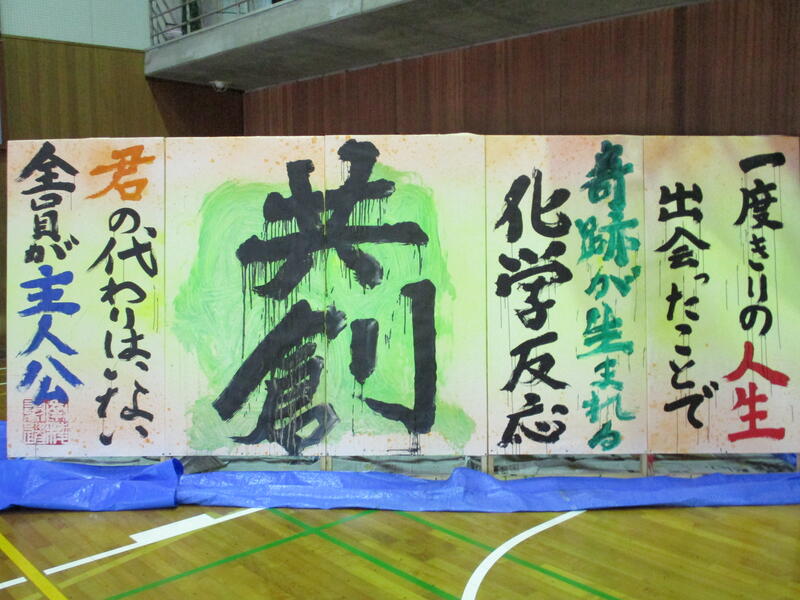 一度きりの人生
出会ったことで
奇跡が生まれる
化学反応
共創
君の代わりはいない
全員が主人公